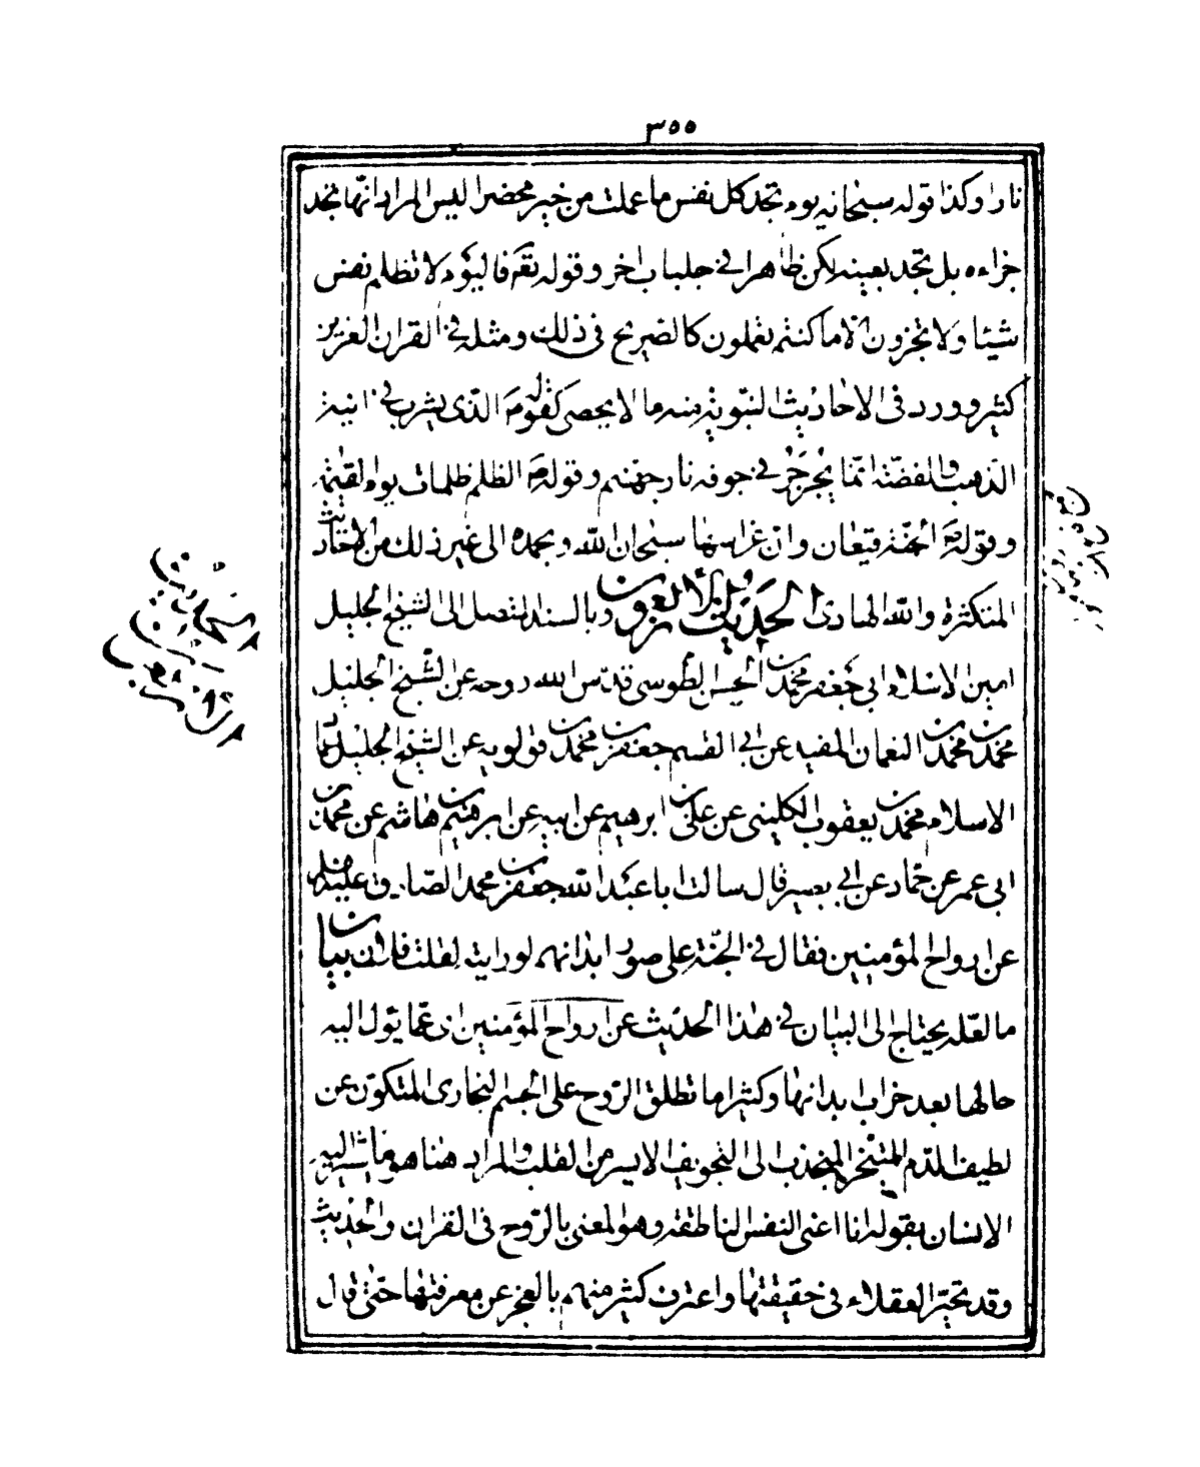 ٣٥٥
نارا وكذا قوله سبحانه يوم تجد كل نفس ما عملت من خير محضرا ليس المراد انها تجد
جزاءه بل تجد بعينه لكن ظاهرا في جلباب اخر وقوله تع فاليوم لا تظلم نفس
شيئا ولا تجزون الا ما كنتم تعملون كالصريح في ذلك ومثله في القران العزيز
كثير وورد في الاحاديث النبوية منه ما لا يحصى كقوله ص الذي يشرب في انية
الذهب والفضة انما يجرجر في جوفه نار جهنم وقوله ص الظلم ظلمات يوم القيمة
وقوله ص الجنة قيعان وان غراسها سبحان الله وبحمده الى غير ذلك من الاحاديث
المتكثرة والله الهادي الحديث الاربعون وبالسند المتصل الى الشيخ الجليل
امين الاسلام ابي جعفر محمد بن الحسن الطوسي قدس الله روحه عن الشيخ الجليل
محمد بن محمد بن النعمان المفيد عن ابي القسم جعفر بن محمد بن قولويه عن الشيخ الجليل ثقة
الاسلام محمد بن يعقوب الكليني عن علي بن ابرهيم عن ابيه عن ابرهيم بن هاشم عن محمد بن
ابي عمير عن حماد عن ابي بصير قال سالت ابا عبد الله جعفر بن محمد الصادق عليه السلم
عن ارواح المؤمنين فقال في الجنة على صور ابدانهم لو رايته لقلت فلان بيان
ما لعله يحتاج الى البيان في هذا الحديث عن ارواح المؤمنين اي عما يؤل اليه
حالها بعد خراب ابدانها وكثيرا ما تطلق الروح على الجسم البخاري المتكون عن
لطيف الدم المتبخر المنجذب الى التجويف الايسر من القلب والمراد هنا هو ما يشير اليه
الانسان بقوله انا اعني النفس الناطقة وهو المعني بالروح في القران والحديث
وقد تحير العقلاء في حقيقتها واعترف كثير منهم بالعجز عن معرفتها حتى قال